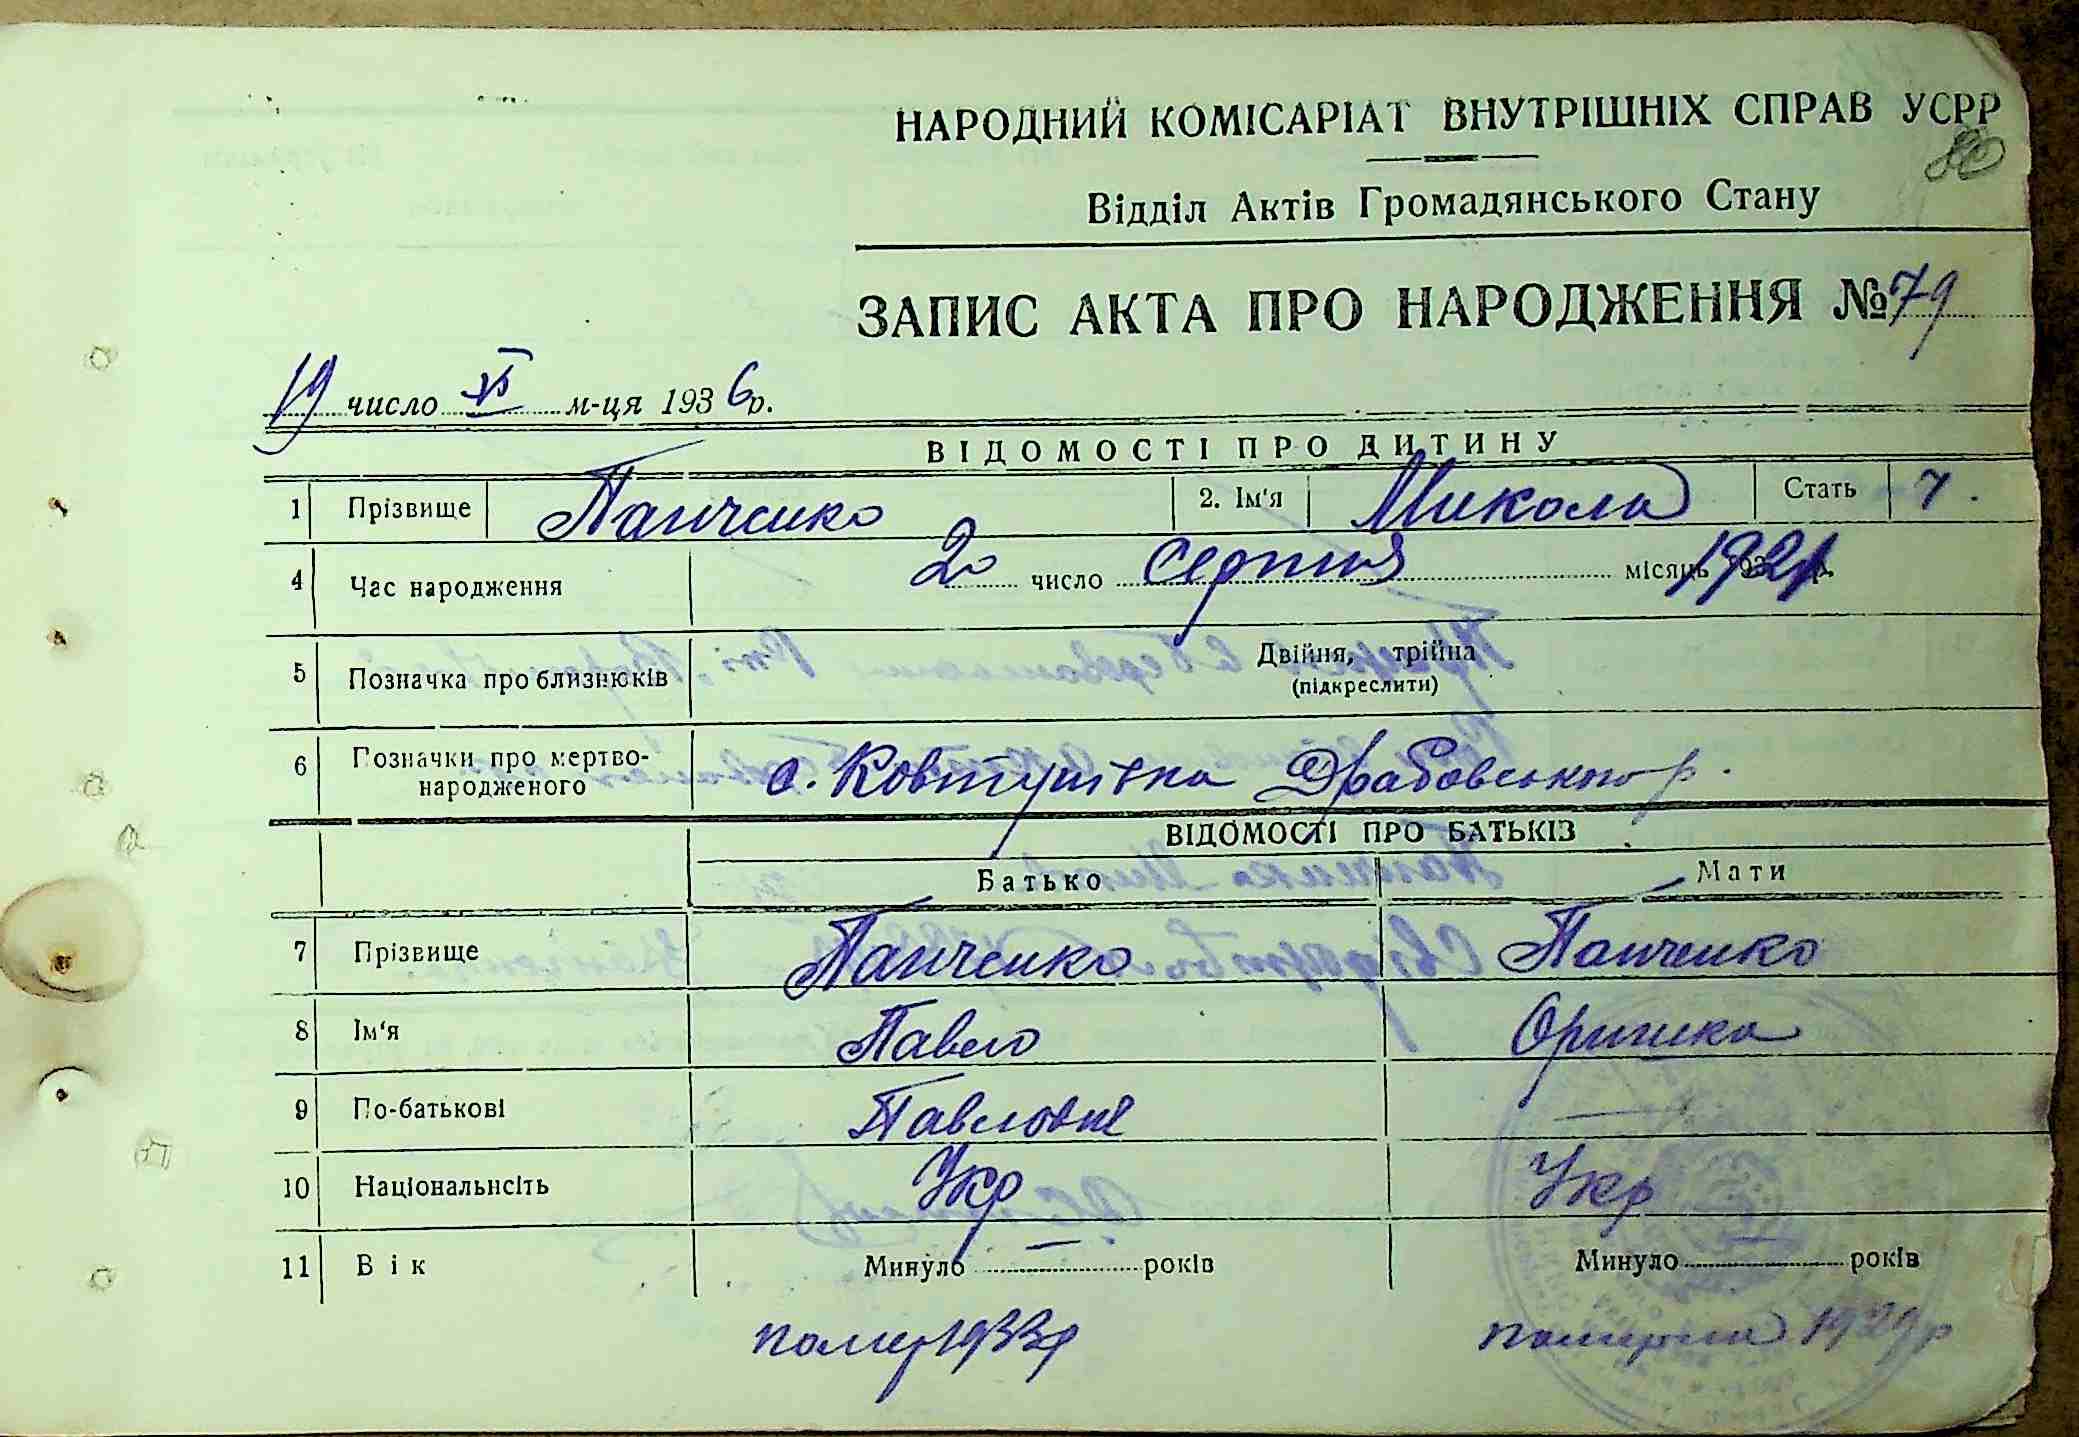 НАРОДНИЙ КОМІСАРІАТ ВНУТРІШНІХ СПРАВ УСРР
80
Відділ Актів Громадянського Стану
ЗАПИС АКТА ПРО НАРОДЖЕННЯ № 79
19 число VI м-ця 1936 р.
ВІДОМОСТІ ПРО ДИТИНУ
1 Прізвище Панченко 2. Ім'я Микола Стать ч.
4 Час народження 20 число серпня місяць 1921
5 Позначка про близнюків Двійня, трійня
(підкреслити)
6 Позначки про мертво-
народженого с. Ковтунівка Драбовського р.
ВІДОМОСТІ ПРО БАТЬКІВ
Батько Мати
7 Прізвище Панченко Панченко
8 Ім'я Павло Оришка
9 По-батькові Павлович —
10 Національнсіть Укр Укр
11 Вік Минуло — років Минуло років
помер 1933р померла 1929р